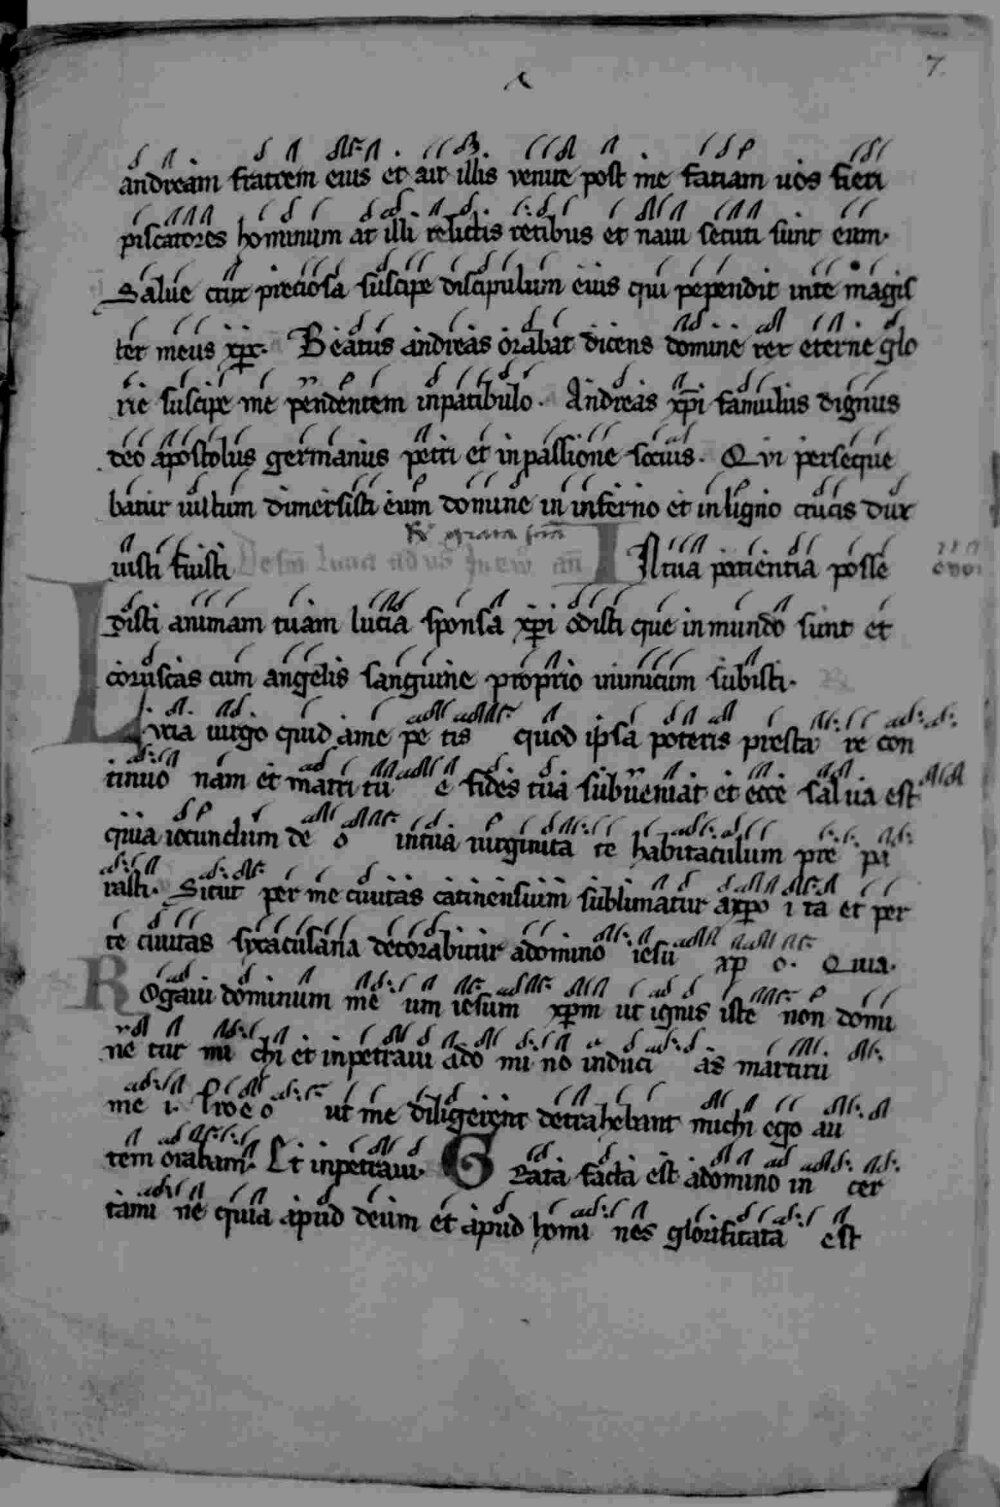 7
andream fratrem eius et ait illis venite post me faciam uos fieri
piscatores hominum at illi relictis retibus et naui secuti sunt eum.
Salue crux preciosa suscipe discipulum eius qui pependit inte magis
ter meus xpc. Beatus andreas orabat dicens domine rex eterne glo
rie suscipe me pendentem inpatibulo. Andreas xpi famulus dignus
deo apostolus germanus petri et inpassione socius. Qvi perseque
bantur iustum dimersisti eum domine in inferno et inligno crucis dux
iusti fuisti INtua patientia posse
disti animam tuam lucia sponsa xpi odisti que inmundo sunt et
coruscas cum angelis sanguine proprio inimicum subisti.
Lucia uirgo quid ame pe tis quod ipsa poteris presta re con
tinuo nam et matri tu e fides tua subueniat et ecce salua est
quia iocundum de o intua uirginita te habitaculum pre pa
rasti. Sicut per me ciuitas catinensium sublimatur axpo i ta et per
te ciuitas syracusana decorabitur adomino iesu xp o. Quia.
Rogaui dominum me um iesum xpm ut ignis iste non domi
ne tur mi chi et inpetraui ado mi no induci as martirii
me i. Pro e o ut me diligerent detrahebant michi ego au
tem orabam. Et inpetraui. Grata facta est adomino in cer
tami ne quia apud deum et apud homi nes glorificata est